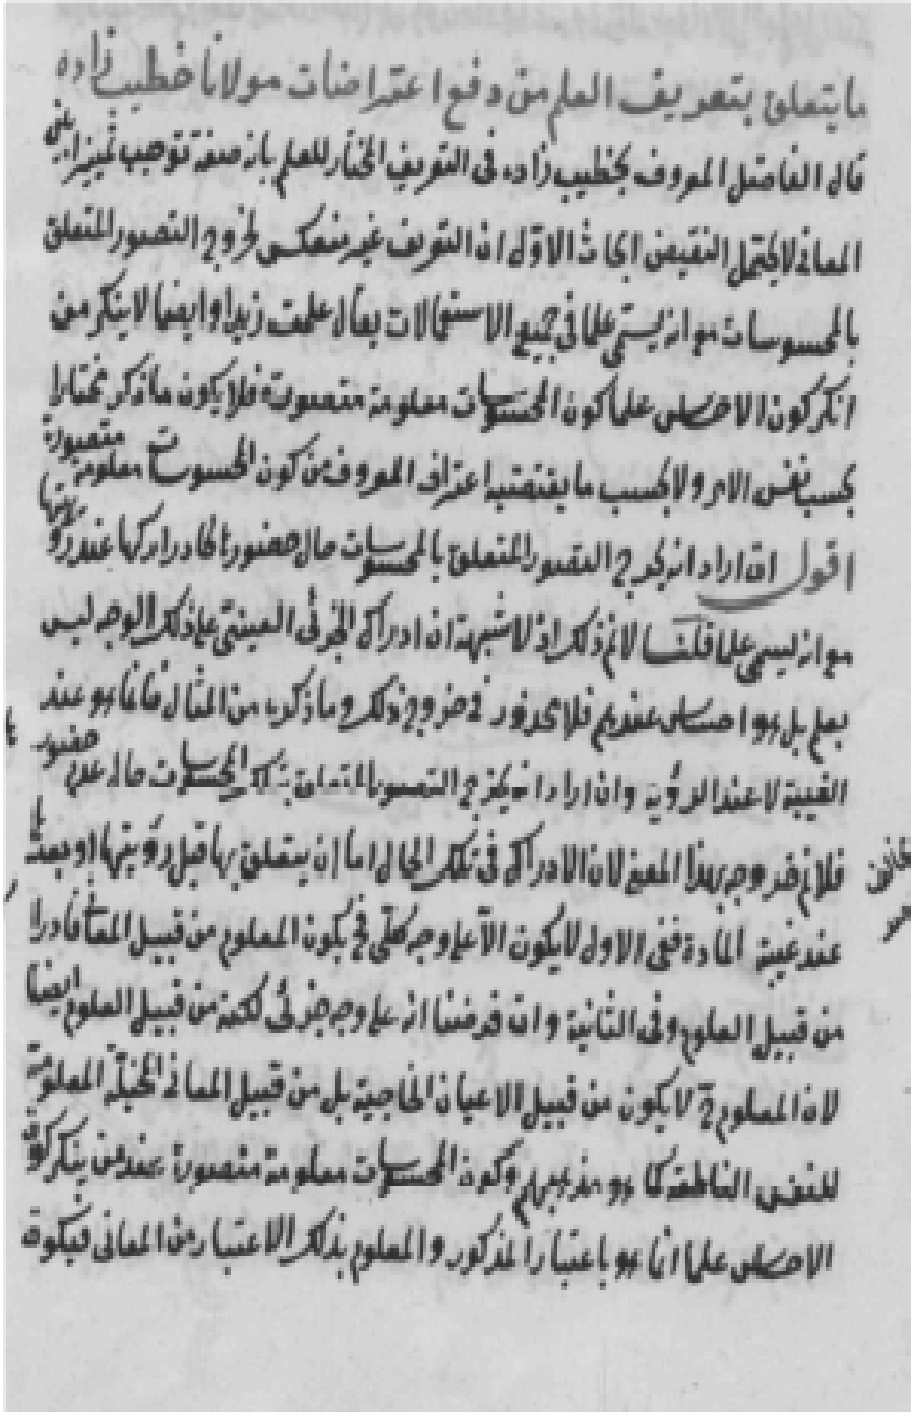 ما يتعلق بتعريف العلم من دفع اعتراضات مولانا خطيب زاده
قال الفاضل المعروف بخطيب زاده في التعريف المختار للعلم بانه صفة توجب تمييزا بين
المعاني لا يحتمل النقيض ابحاث الاول ان التعريف غير منعكس لخروج التصور المتعلق
بالمحسوسات مع انه يسمى علما في جميع الاستعمالات يقال علمت زيدا وايضا لا ينكر من
انكر كون الاحساس علما كون المحسوسات معلومة متصورة فلا يكون ما ذكر مختارا
بحسب نفس الامر ولا بحسب ما يقتضيه اعتراف المعروف من كون المحسوسات معلومة متصورة
اقول ان اراد انه يخرج التصور المتعلق بالمحسوسات حال حضورها كادراكها عند رؤيتها
مع انه يسمى علما قلنا لانم ذلك اذ لا شبهة ان ادراك الجزئي العيني على ذلك الوجه ليس
بعلم بل هو احساس عندهم فلا محذور في خروج ذلك وما ذكره من المثال فانما هو عند
الغيبة لا عند الرؤية وان اراد انه يخرج التصور المتعلق بتلك المحسوسات حال عدم حضور
فلانم خروجه بهذا المعنى لان الادراك في تلك الحال اما ان يتعلق بها قبل رؤيتها او بعدها
عند غيبة المادة ففي الاول لا يكون الا على وجه كلي فح يكون المعلوم من قبيل المعاني فادراكه
من قبيل العلوم وفي الثانية وان فرضنا انه على وجه جزئي لكنه من قبيل العلوم ايضا
لان المعلوم ح لا يكون من قبيل الاعيان الخارجية بل من قبيل المعاني المخيلة المعلومة
للنفس الناطقة كما هو مذهبهم وكون المحسوسات معلومة متصورة عند من ينكر كون
الاحساس علما انما هو باعتبار المذكور والمعلوم بذلك الاعتبار من المعاني فيكون